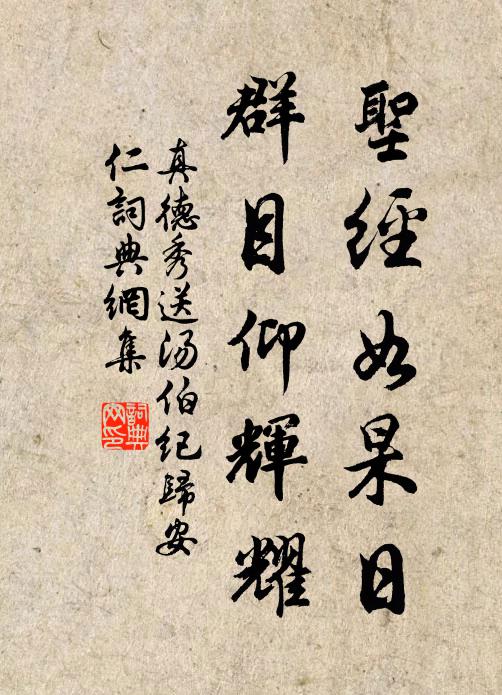 聖經如杲日
群目仰輝耀
真德秀送湯伯紀歸安
仁詞典網集
詞典网印